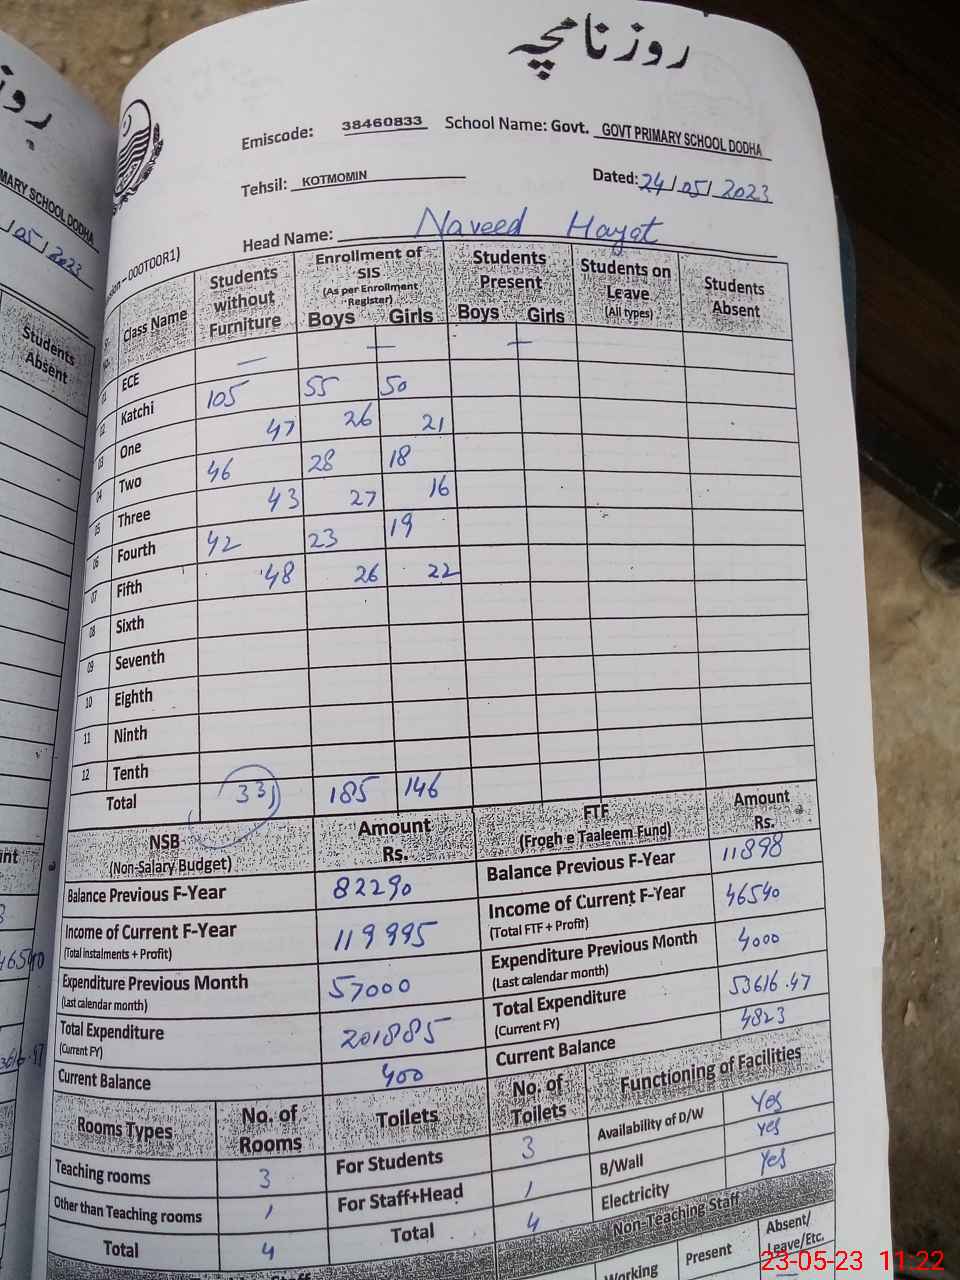 روزنامچہ
Emiscode: 38460833 School Name: Govt. GOVT PRIMARY SCHOOL DODHA
Tehsil: KOTMOMIN Dated: 24/05/2023
Head Name: Naveed Hayat
Class Name Students without Furniture Enrollment of SIS (As per Enrollment Register) Boys Girls Students Present Boys Girls Students on Leave (All types) Students Absent
01 ECE — — —
02 Katchi 105 55 50
03 One 47 26 21
04 Two 46 28 18
05 Three 43 27 16
06 Fourth 42 23 19
07 Fifth 48 26 22
08 Sixth
09 Seventh
10 Eighth
11 Ninth
12 Tenth
Total 331 185 146
NSB (Non-Salary Budget) Amount Rs. FTF (Frogh e Taaleem Fund) Amount Rs.
Balance Previous F-Year 82290 Balance Previous F-Year 11898
Income of Current F-Year (Total Instalments + Profit) 119995 Income of Current F-Year (Total FTF + Profit) 46540
Expenditure Previous Month (Last calendar month) 57000 Expenditure Previous Month (Last calendar month) 4000
Total Expenditure (Current FY) 201885 Total Expenditure (Current FY) 53616.47
Current Balance 400 Current Balance 4823
Rooms Types No. of Rooms Toilets No. of Toilets Functioning of Facilities
Teaching rooms 3 For Students 3 Availability of D/W Yes
Other than Teaching rooms 1 For Staff+Head 1 B/Wall Yes
Total 4 Total 4 Electricity Yes
Non-Teaching Staff
Working Present Absent/Leave/Etc.
MARY SCHOOL DODHA
/05/2023
Students Absent
46540
23-05-23 11:22